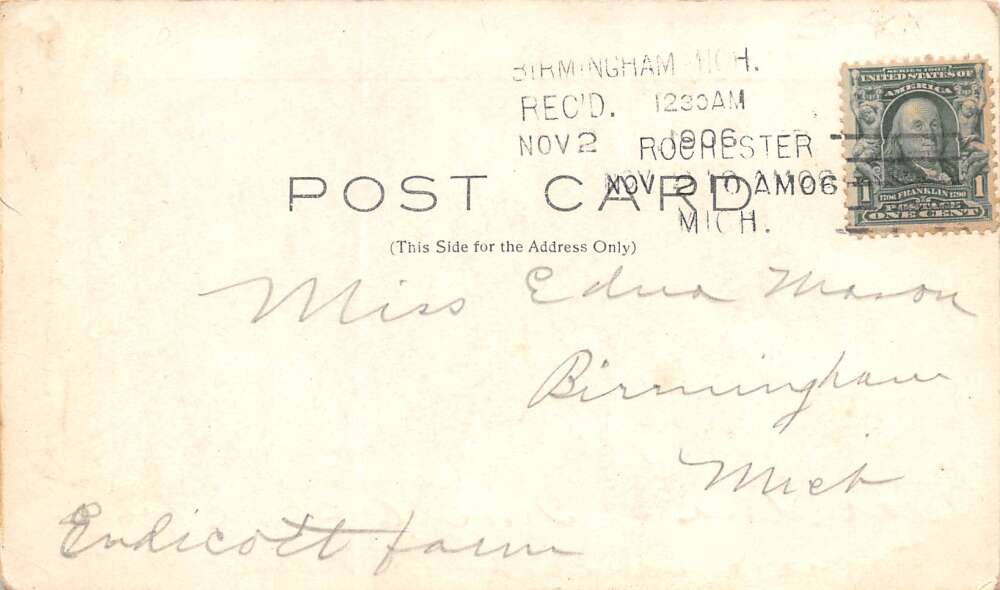 BIRMINGHAM MICH.
REC'D. 1230AM
NOV 2 1906
ROCHESTER
NOV 2 10 AM 06
MICH.
SERIES 1902
UNITED STATES OF
AMERICA
1 1706 FRANKLIN 1790 1
POSTAGE
ONE CENT
POST CARD
(This Side for the Address Only)
Miss Edna Mason
Birmingham
Mich
Endicott farm